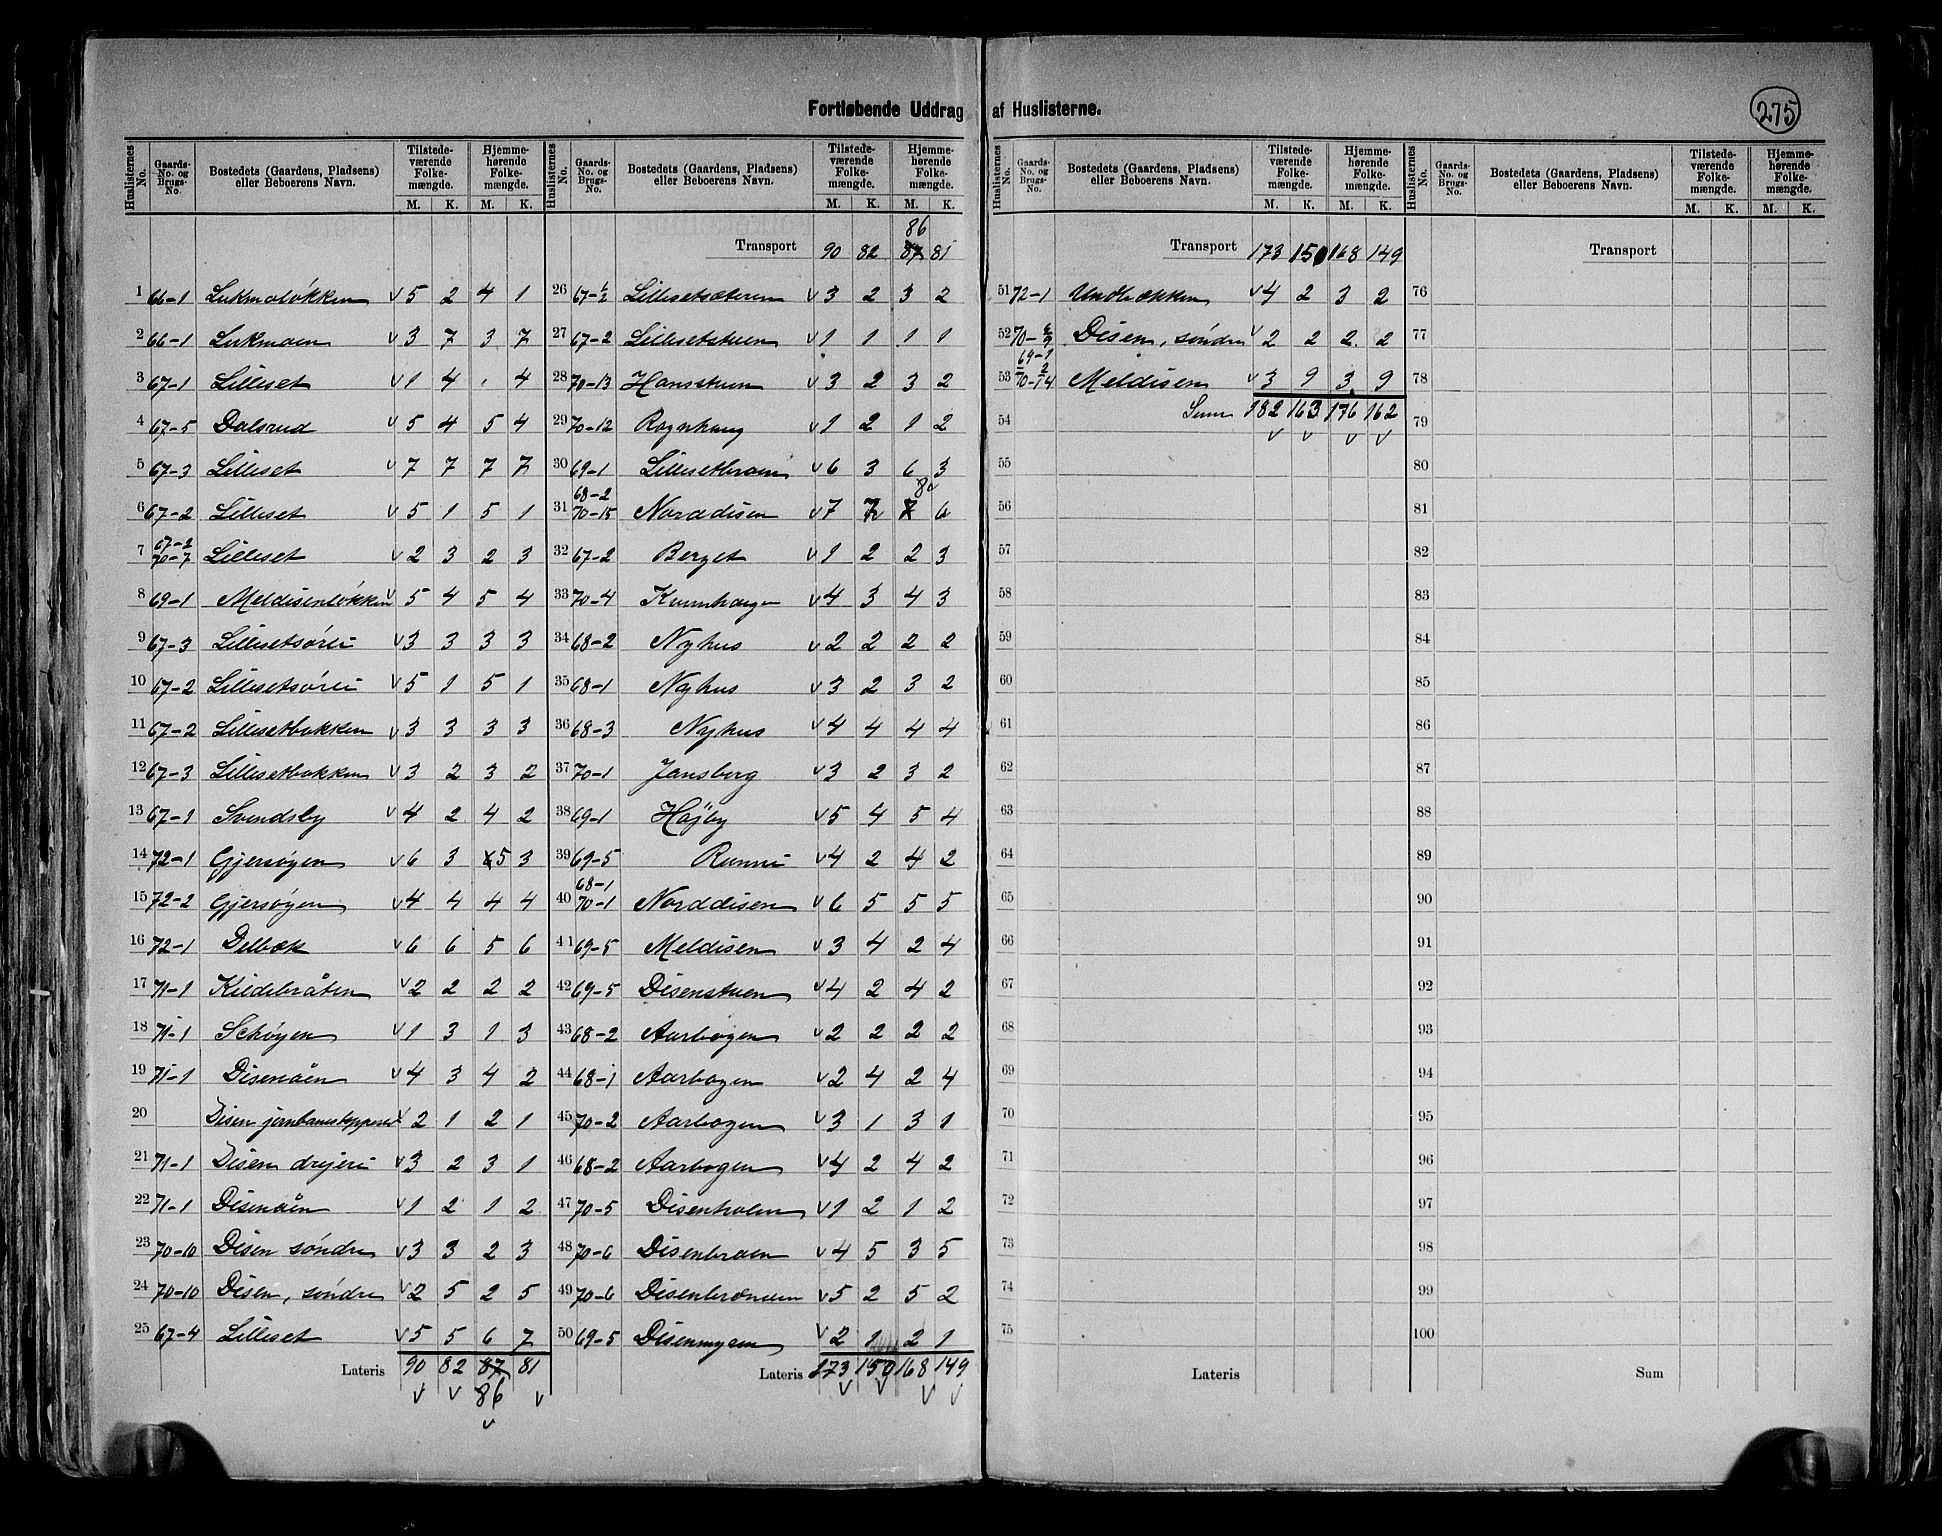 Fortløbende Uddrag af Huslisterne.
275
Huslisternes No. Gaards-No. og Brugs-No. Bostedets (Gaardens, Pladsens) eller Beboerens Navn. Tilstedeværende Folkemængde. M. K. Hjemmehørende Folkemængde. M. K.
1 66-1 v 5 2 4 1
2 66-1 v 3 7 3 7
3 67-1 Lilliset v 1 4 . 4
4 67-5 Dalsrud v 5 4 5 4
5 67-3 Lilliset v 7 7 7 7
6 67-2 Lilliset v 5 1 5 1
7 67-2 70-7 Lilliset v 2 3 2 3
8 69-1 Meldisenløkken v 5 4 5 4
9 67-3 Lillisetsørli v 3 3 3 3
10 67-2 Lillisetsørli v 5 1 5 1
11 67-2 Lillisetbakken v 3 3 3 3
12 67-3 Lillisetbakken v 3 2 3 2
13 67-1 Svendsby v 4 2 4 2
14 72-1 Gjersøyen v 6 3 5 3
15 72-2 Gjersøyen v 4 4 4 4
16 72-1 Delbæk v 6 6 5 6
17 71-1 Kildebråten v 2 2 2 2
18 71-1 v 1 3 1 3
19 71-1 Disenåen v 4 3 4 2
20 Disen v 2 1 2 1
21 71-1 Disen drejeri v 3 2 3 1
22 71-1 Disenåen v 1 2 1 2
23 70-10 Disen søndre v 3 3 2 3
24 70-10 Disen, søndre v 2 5 2 5
25 67-4 Lilliset v 5 5 6 7
Lateris 90 82 87 81
86
Huslisternes No. Gaards-No. og Brugs-No. Bostedets (Gaardens, Pladsens) eller Beboerens Navn. Tilstedeværende Folkemængde. M. K. Hjemmehørende Folkemængde. M. K.
86
Transport 90 82 87 81
26 67-1/2 Lillisetsæteren v 3 2 3 2
27 67-2 Lillisetstuen v 1 1 1 1
28 70-13 Hansstuen v 3 2 3 2
29 70-12 Rognhaug v 1 2 1 2
30 69-1 Lillisetbraen v 6 3 6 3
31 68-2 70-15 Norddisen v 7 7 8 6
32 67-2 Berget v 1 2 2 3
33 70-4 v 4 3 4 3
34 68-2 Nyhus v 2 2 2 2
35 68-1 Nyhus v 3 2 3 2
36 68-3 Nyhus v 4 4 4 4
37 70-1 Jansberg v 3 2 3 2
38 69-1 Højby v 5 4 5 4
39 69-5 v 4 2 4 2
40 68-1 70-1 Norddisen v 6 5 5 5
41 69-5 Meldisen v 3 4 2 4
42 69-5 Disenstuen v 4 2 4 2
43 68-2 Aarbogen v 2 2 2 2
44 68-1 Aarbogen v 2 4 2 4
45 70-2 Aarbogen v 3 1 3 1
46 68-2 Aarbogen v 4 2 4 2
47 70-5 Disenholen v 1 2 1 2
48 70-6 Disenbraen v 4 5 3 5
49 70-6 Disenbrænden v 5 2 5 2
50 69-5 Disenmyren v 2 1 2 1
Lateris 173 150 168 149
Huslisternes No. Gaards-No. og Brugs-No. Bostedets (Gaardens, Pladsens) eller Beboerens Navn. Tilstedeværende Folkemængde. M. K. Hjemmehørende Folkemængde. M. K.
Transport 173 150 168 149
51 72-1 Undbækken v 4 2 3 2
52 70-6/9 Disen, søndre v 2 2 2 2
53 69-1 70-2/14 Meldisen v 3 9 3 9
54 Sum 182 163 176 162
55
56
57
58
59
60
61
62
63
64
65
66
67
68
69
70
71
72
73
74
75
Lateris
Huslisternes No. Gaards-No. og Brugs-No. Bostedets (Gaardens, Pladsens) eller Beboerens Navn. Tilstedeværende Folkemængde. M. K. Hjemmehørende Folkemængde. M. K.
Transport
76
77
78
79
80
81
82
83
84
85
86
87
88
89
90
91
92
93
94
95
96
97
98
99
100
Sum